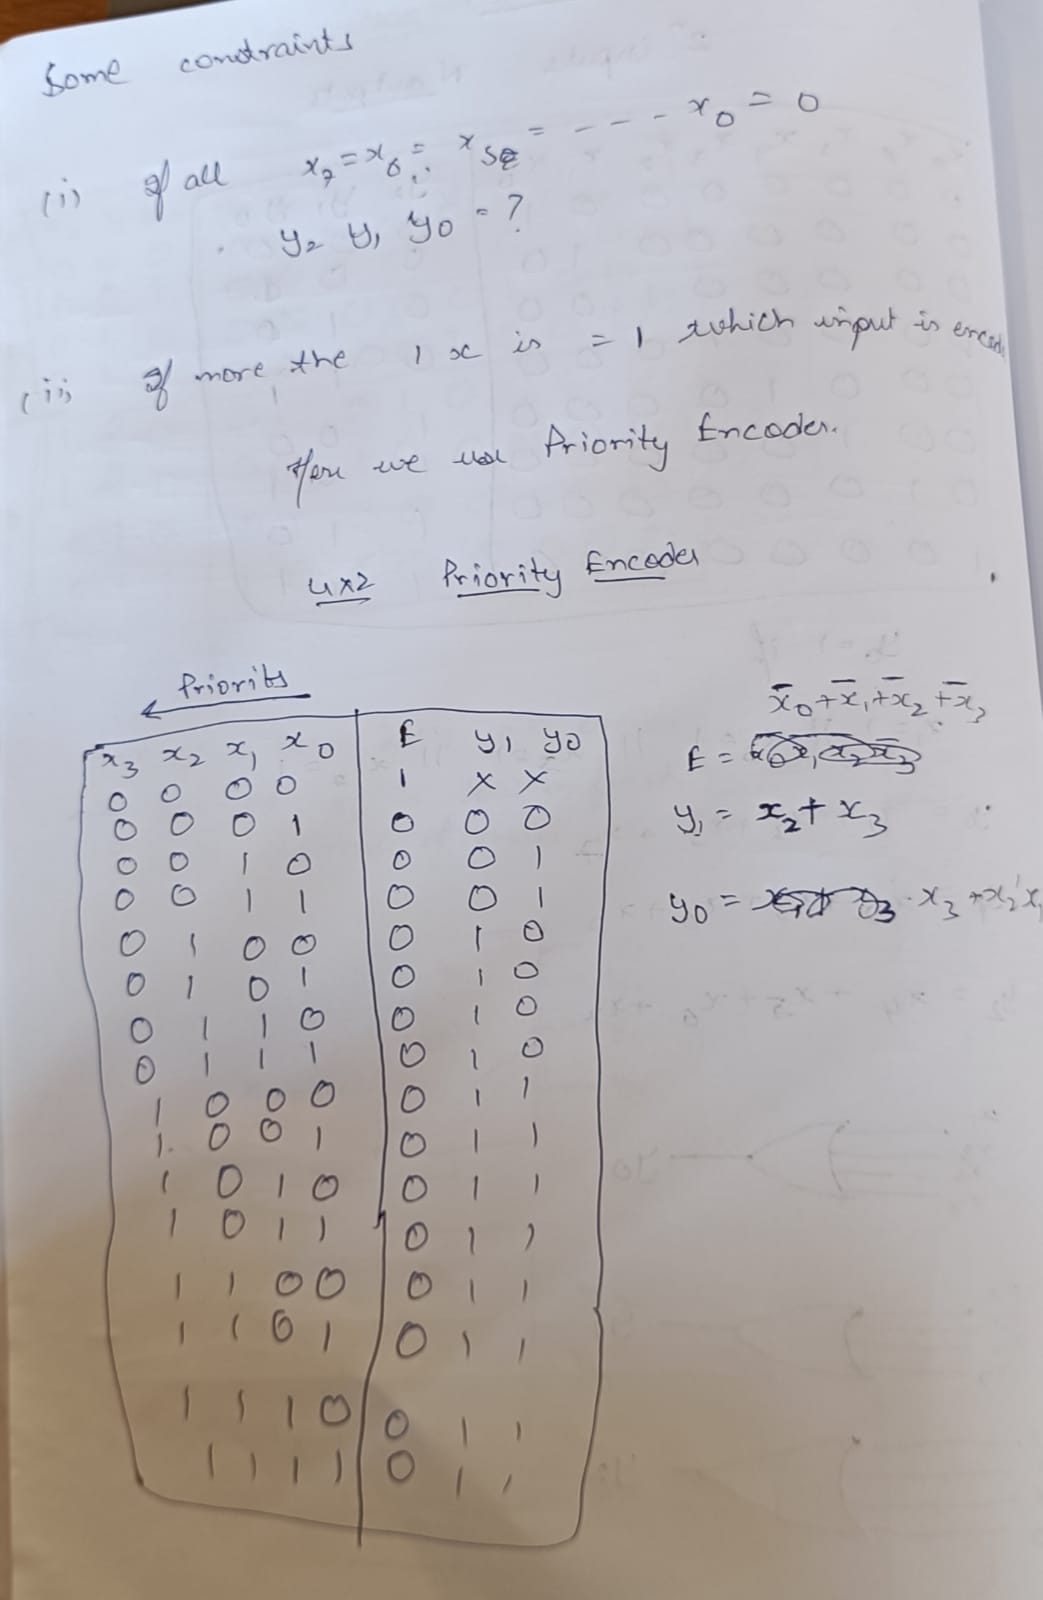 Some constraints
(i) If all x₇ = x₆ = x₅ = - - - - x₀ = 0
y₂ y₁ y₀ = ?
(ii) If more the 1 x is = 1 which input is encode
Here we use Priority Encoder.
4x2 Priority Encoder
Priority
x₃ x₂ x₁ x₀ E y₁ y₀
0 0 0 0 1 x x
0 0 0 1 0 0 0
0 0 1 0 0 0 1
0 0 1 1 0 0 1
0 1 0 0 0 1 0
0 1 0 1 0 1 0
0 1 1 0 0 1 0
0 1 1 1 0 1 0
1 0 0 0 0 1 1
1 0 0 1 0 1 1
1 0 1 0 0 1 1
1 0 1 1 0 1 1
1 1 0 0 0 1 1
1 1 0 1 0 1 1
1 1 1 0 0 1 1
1 1 1 1 0 1 1
x̄₀ + x̄₁ + x̄₂ + x̄₃
E =
y₁ = x₂ + x₃
y₀ = x₃ + x₂' x₁